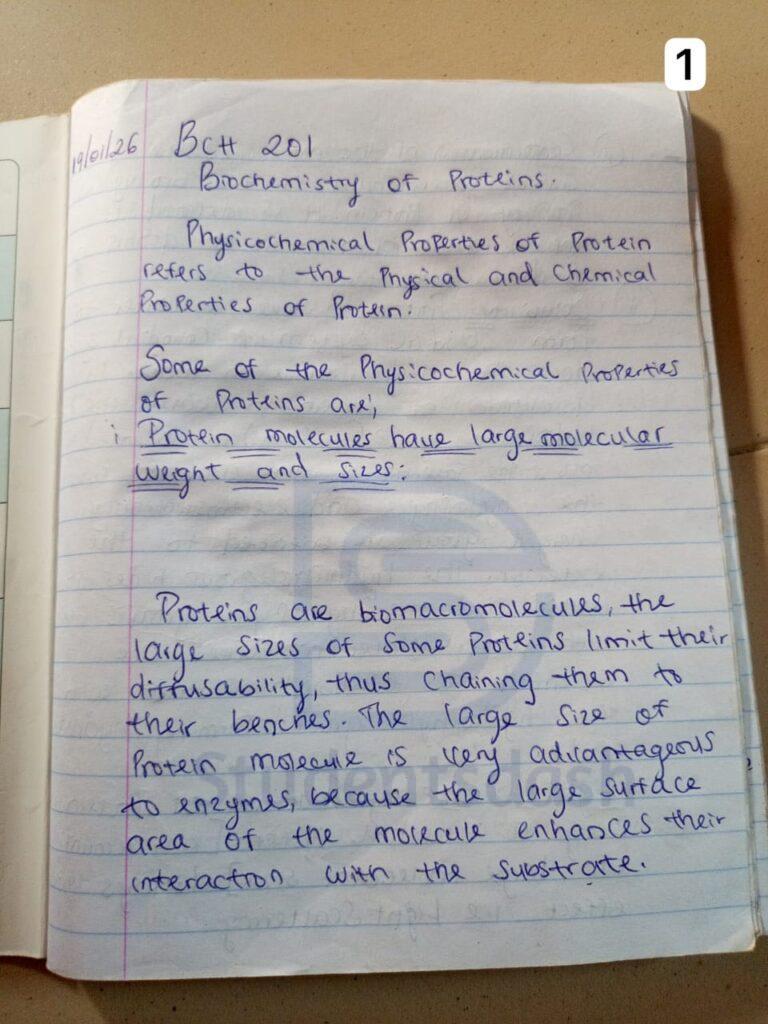 1
19/01/26 BCH 201
Biochemistry of Proteins.
Physicochemical Properties of Protein
refers to the Physical and Chemical
Properties of Protein.
Some of the Physicochemical Properties
of Proteins are;
i Protein molecules have large molecular
weight and sizes:
Proteins are biomacromolecules, the
large sizes of some Proteins limit their
diffusability, thus chaining them to
their benches. The large size of
Protein molecule is very advantageous
to enzymes, because the large surface
area of the molecule enhances their
interaction with the substrate.
Studentsdash